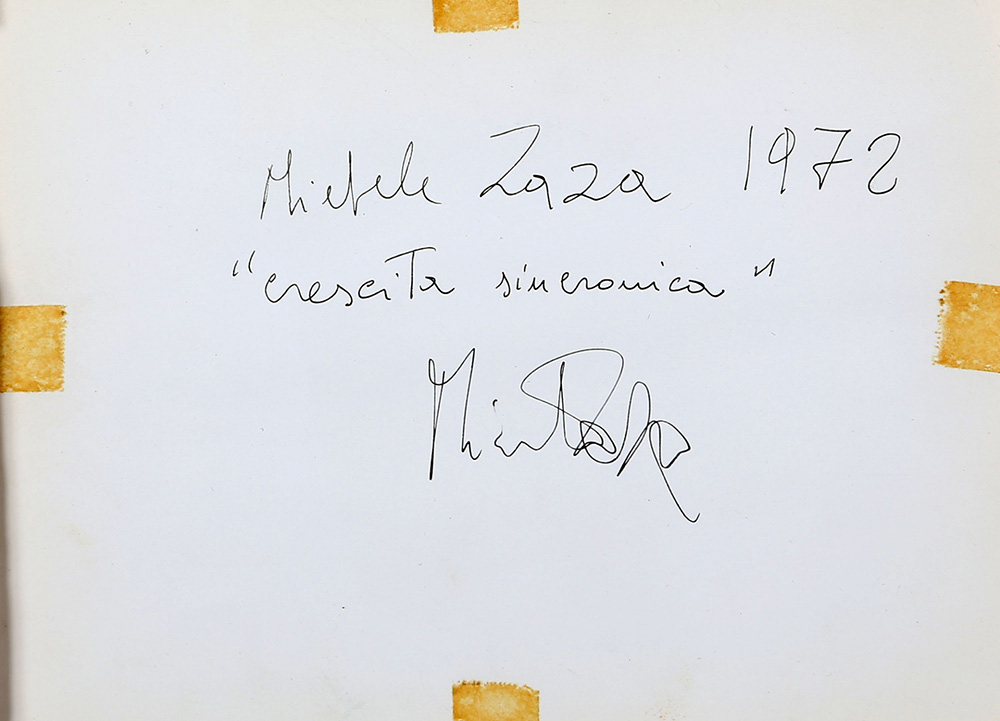 Michele Zaza 1972
"crescita sincronica"